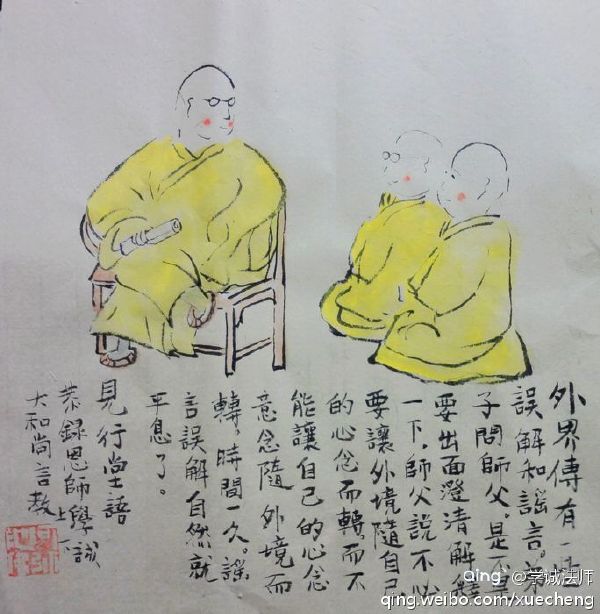 外界傳有一些
誤解和謠言。弟
子問師父，是不是
要出面澄清解釋
一下。師父說不必
要讓外境隨自己
的心念而轉，而不
能讓自己的心念
意念隨外境而
轉。時間一久。謠
言誤解自然就
平息了。
見行堂語
恭錄恩師學上下誠
大和尚言教
Qing @学诚法师
qing.weibo.com/xuecheng